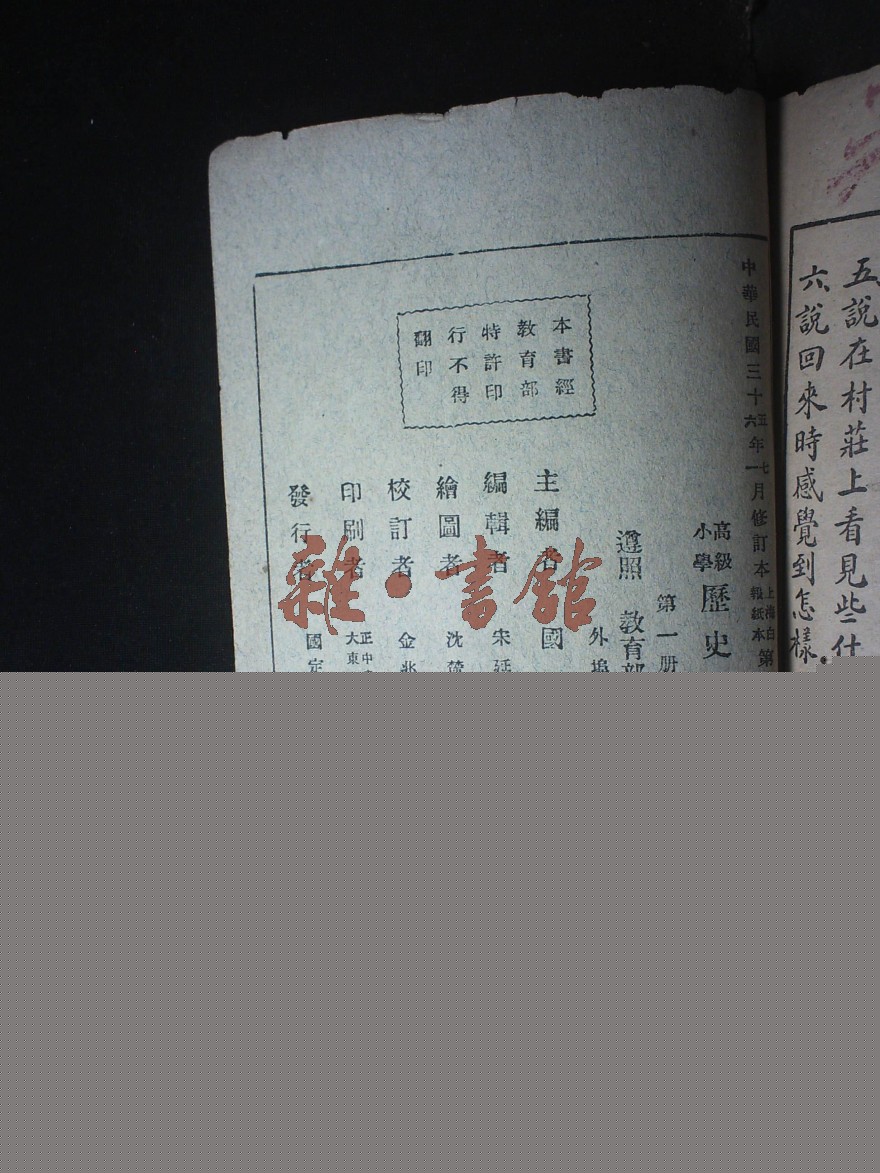 五說在村莊上看見些什
六說回來時感覺到怎樣
中華民國三十五六年七一月修訂本上海白報紙本第
高級小學歷史
第一册
遵照教育部
外埠
主編者 國
編輯者 宋
繪圖者 沈
校訂者 金兆
印刷者 正中大東
發行者 國定
本書經
教育部
特許印
行不得
翻印
雜·書館